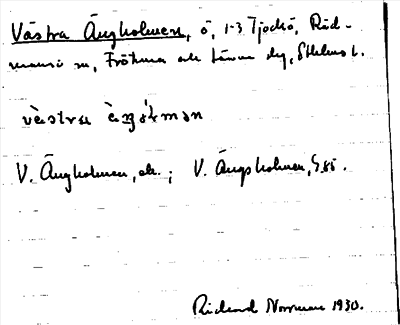 Västra Ängholmen, ö, 1-3 Tjockö, Råd-
mansö sn, Frötuna och Länna skg, Sthlms l.
västra ängɔlmən
V. Ängholmen, ek.; V. Ängsholmen,
Rickard Norrman 1930.